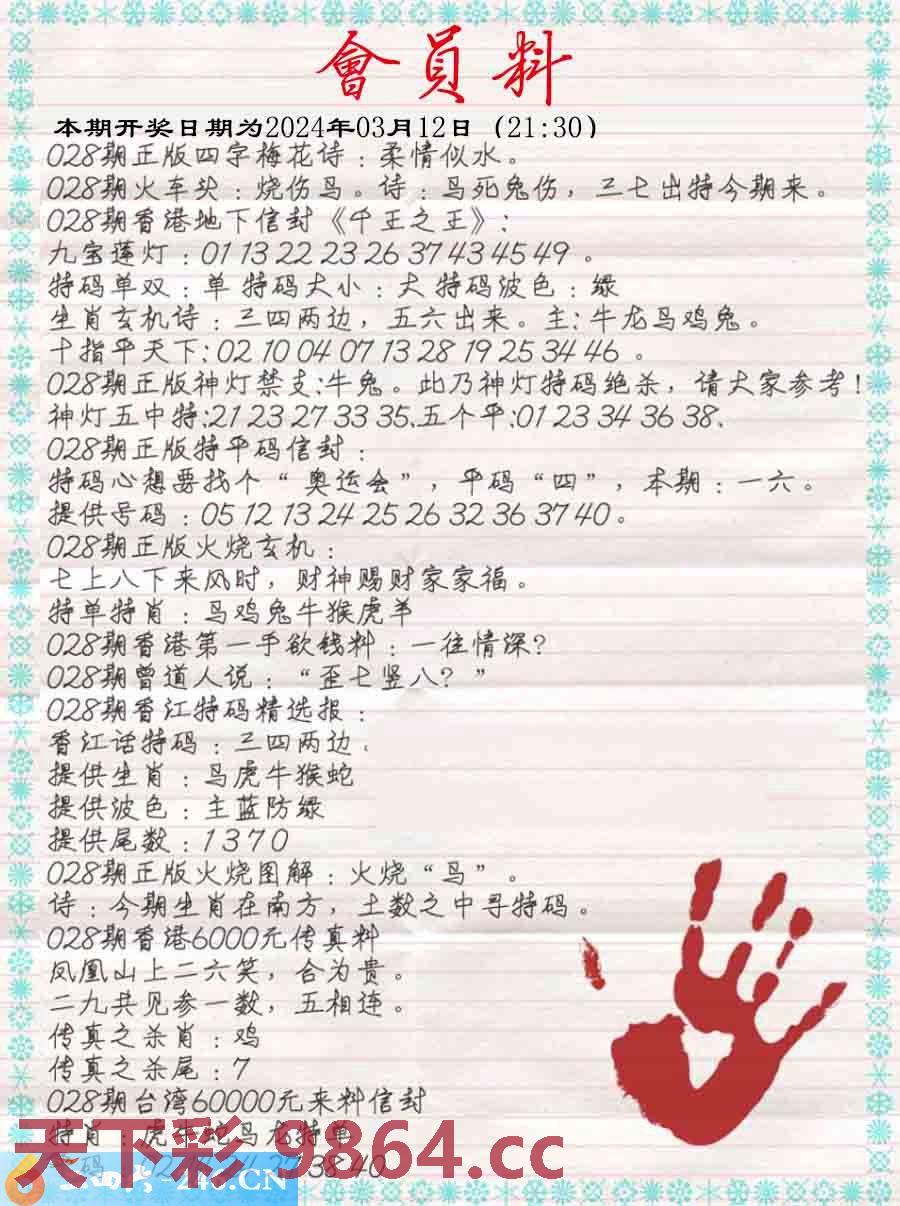 會員料
本期开奖日期为2024年03月12日（21:30）
028期正版四字梅花诗：柔情似水。
028期火车头：烧伤鸟。诗：鸟死兔伤，三七出特今期来。
028期香港地下信封《千王之王》：
九宝莲灯：01 13 22 23 26 37 43 45 49 。
特码单双：单 特码大小：大 特码波色：绿
生肖玄机诗：三四两边，五六出来。主：牛龙马鸡兔。
十指平天下：02 10 04 07 13 28 19 25 34 46 。
028期正版神灯禁支：牛兔。此乃神灯特码绝杀，请大家参考！
神灯五中特：21 23 27 33 35、五个平：01 23 34 36 38、
028期正版特平码信封：
特码心想要找个“奥运会”，平码“四”，本期：一六。
提供号码：05 12 13 24 25 26 32 36 37 40。
028期正版火烧玄机：
七上八下来风时，财神赐财家家福。
特单特肖：马鸡兔牛猴虎羊
028期香港第一手欲钱料：一往情深？
028期曾道人说：“歪七竖八？”
028期香江特码精选报：
香江话特码：三四两边、
提供生肖：马虎牛猴蛇
提供波色：主蓝防绿
提供尾数：1 3 7 0
028期正版火烧图解：火烧“鸟”。
诗：今期生肖在南方，土数之中寻特码。
028期香港6000元传真料
凤凰山上二六笑，合为贵。
二九共见参一数，五相连。
传真之杀肖：鸡
传真之杀尾：7
028期台湾60000元来料信封
特肖：虎牛蛇马龙特单
天下彩 9864.cc
37 38 40
246.CN